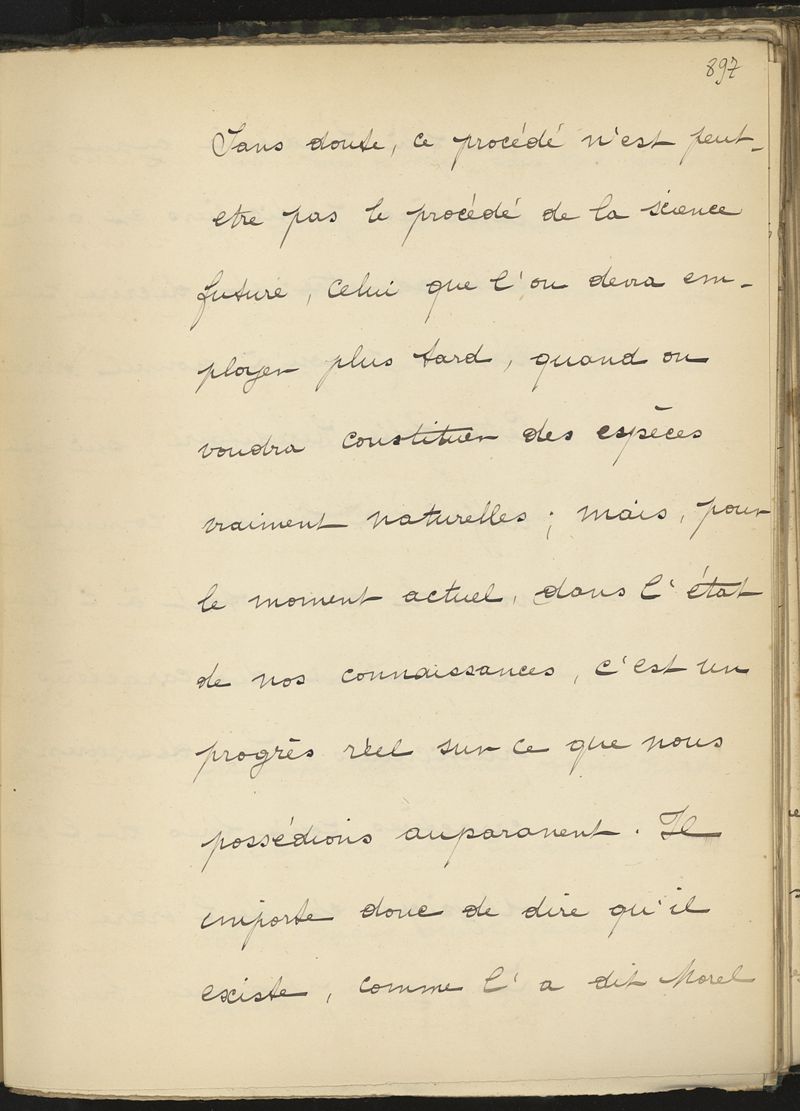 897
Sans doute, ce procédé n'est peut-
etre pas le procédé de la science
future, celui que l'on devra em-
ployer plus tard, quand on
voudra constituer des espèces
vraiment naturelles ; mais, pour
le moment actuel, dans l'état
de nos connaissances, c'est un
progrès réel sur ce que nous
possédions auparavent. Il
importe donc de dire qu'il
existe, comme l'a dit Morel